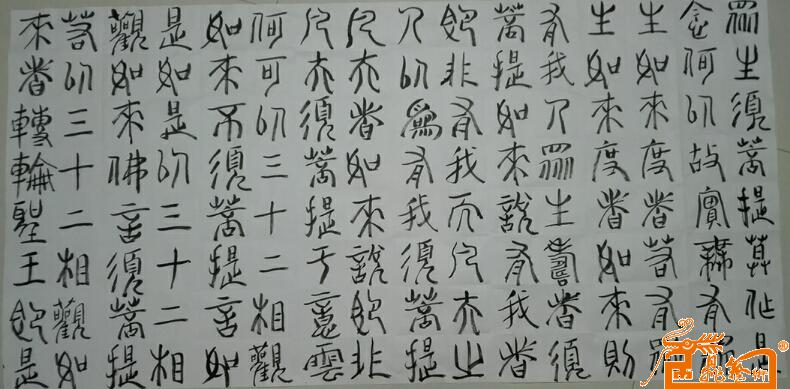 眾生須菩提莫作是
念何以故實無有眾
生如來度者若有眾
生如來度者如來則
有我人眾生壽者須
菩提如來說有我者
即非有我而凡夫之
人以為有我須菩提
凡夫者如來說即非
凡夫須菩提于意雲
何可以三十二相觀
如來不須菩提言如
是如是以三十二相
觀如來佛言須菩提
若以三十二相觀如
來者轉輪聖王即是